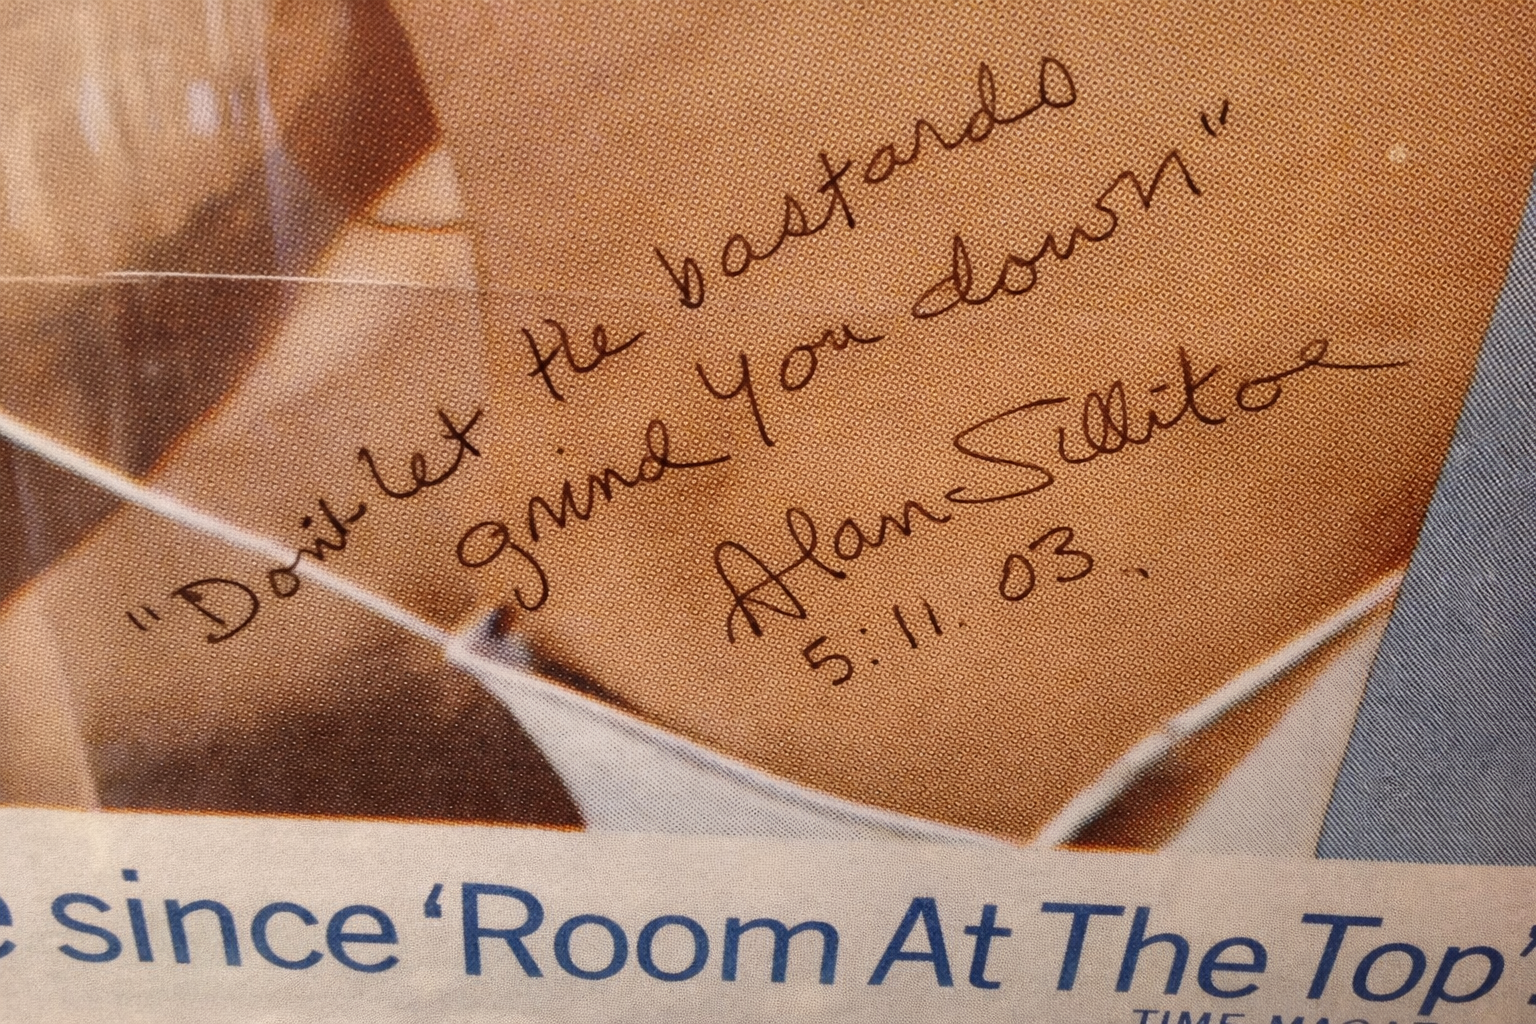 "Don't let the bastards
grind you down"
Alan Sillitoe
5:11. 03.
e since 'Room At The Top'.
TIME MAGA